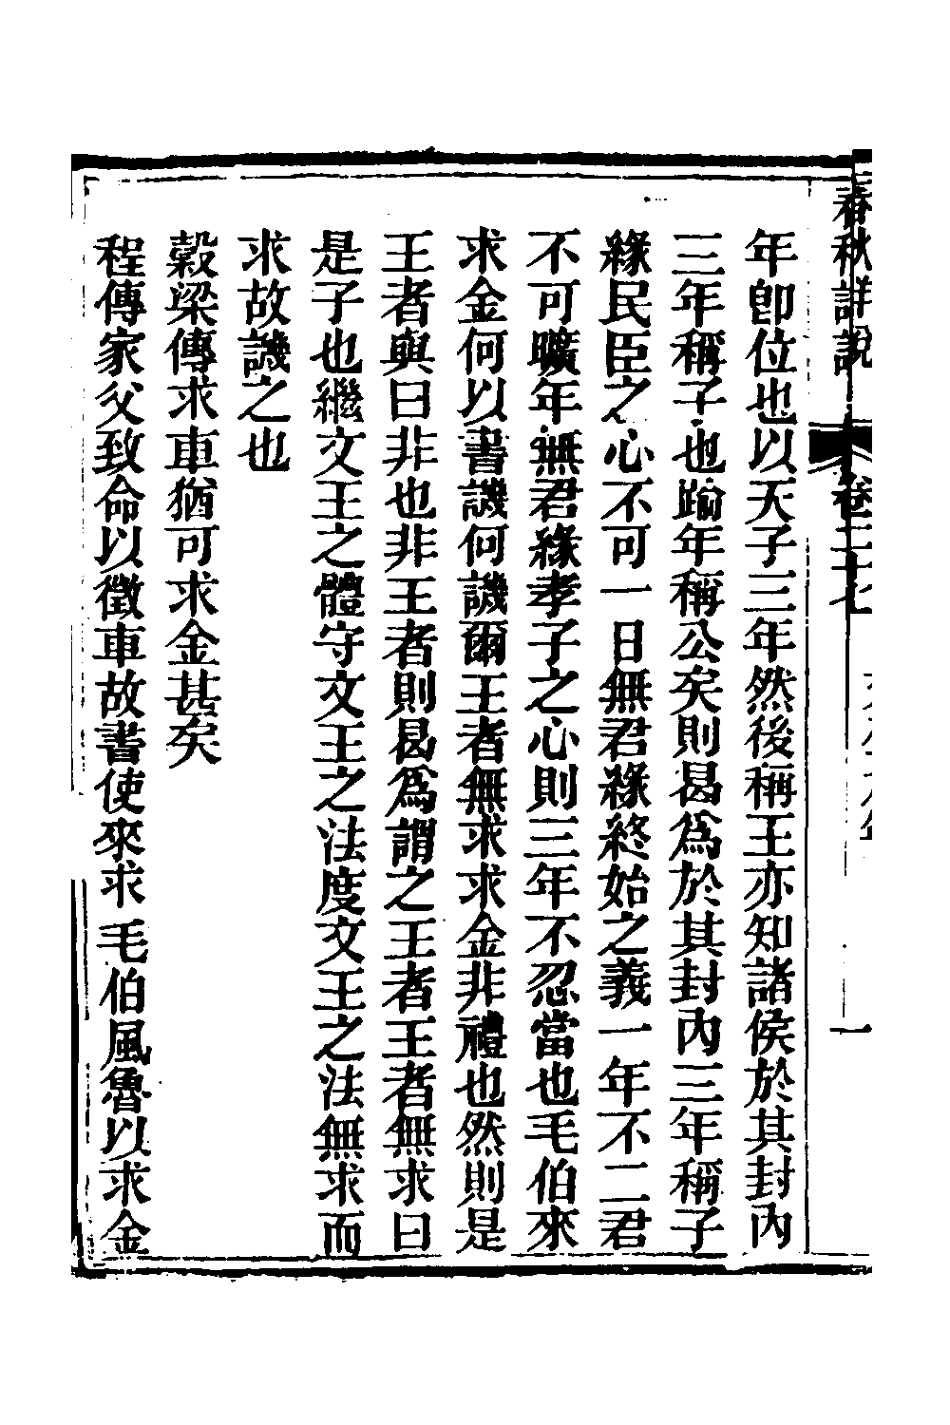 春秋詳說
卷二十七
一
年卽位也以天子三年然後稱王亦知諸侯於其封內
三年稱子也踰年稱公矣則曷爲於其封內三年稱子
緣民臣之心不可一日無君緣終始之義一年不二君
不可曠年無君緣孝子之心則三年不忍當也毛伯來
求金何以書譏何譏爾王者無求求金非禮也然則是
王者與曰非也非王者則曷爲謂之王者王者無求曰
是子也繼文王之體守文王之法度文王之法無求而
求故譏之也
穀梁傳求車猶可求金甚矣
程傳家父致命以徵車故書使來求毛伯風魯以求金